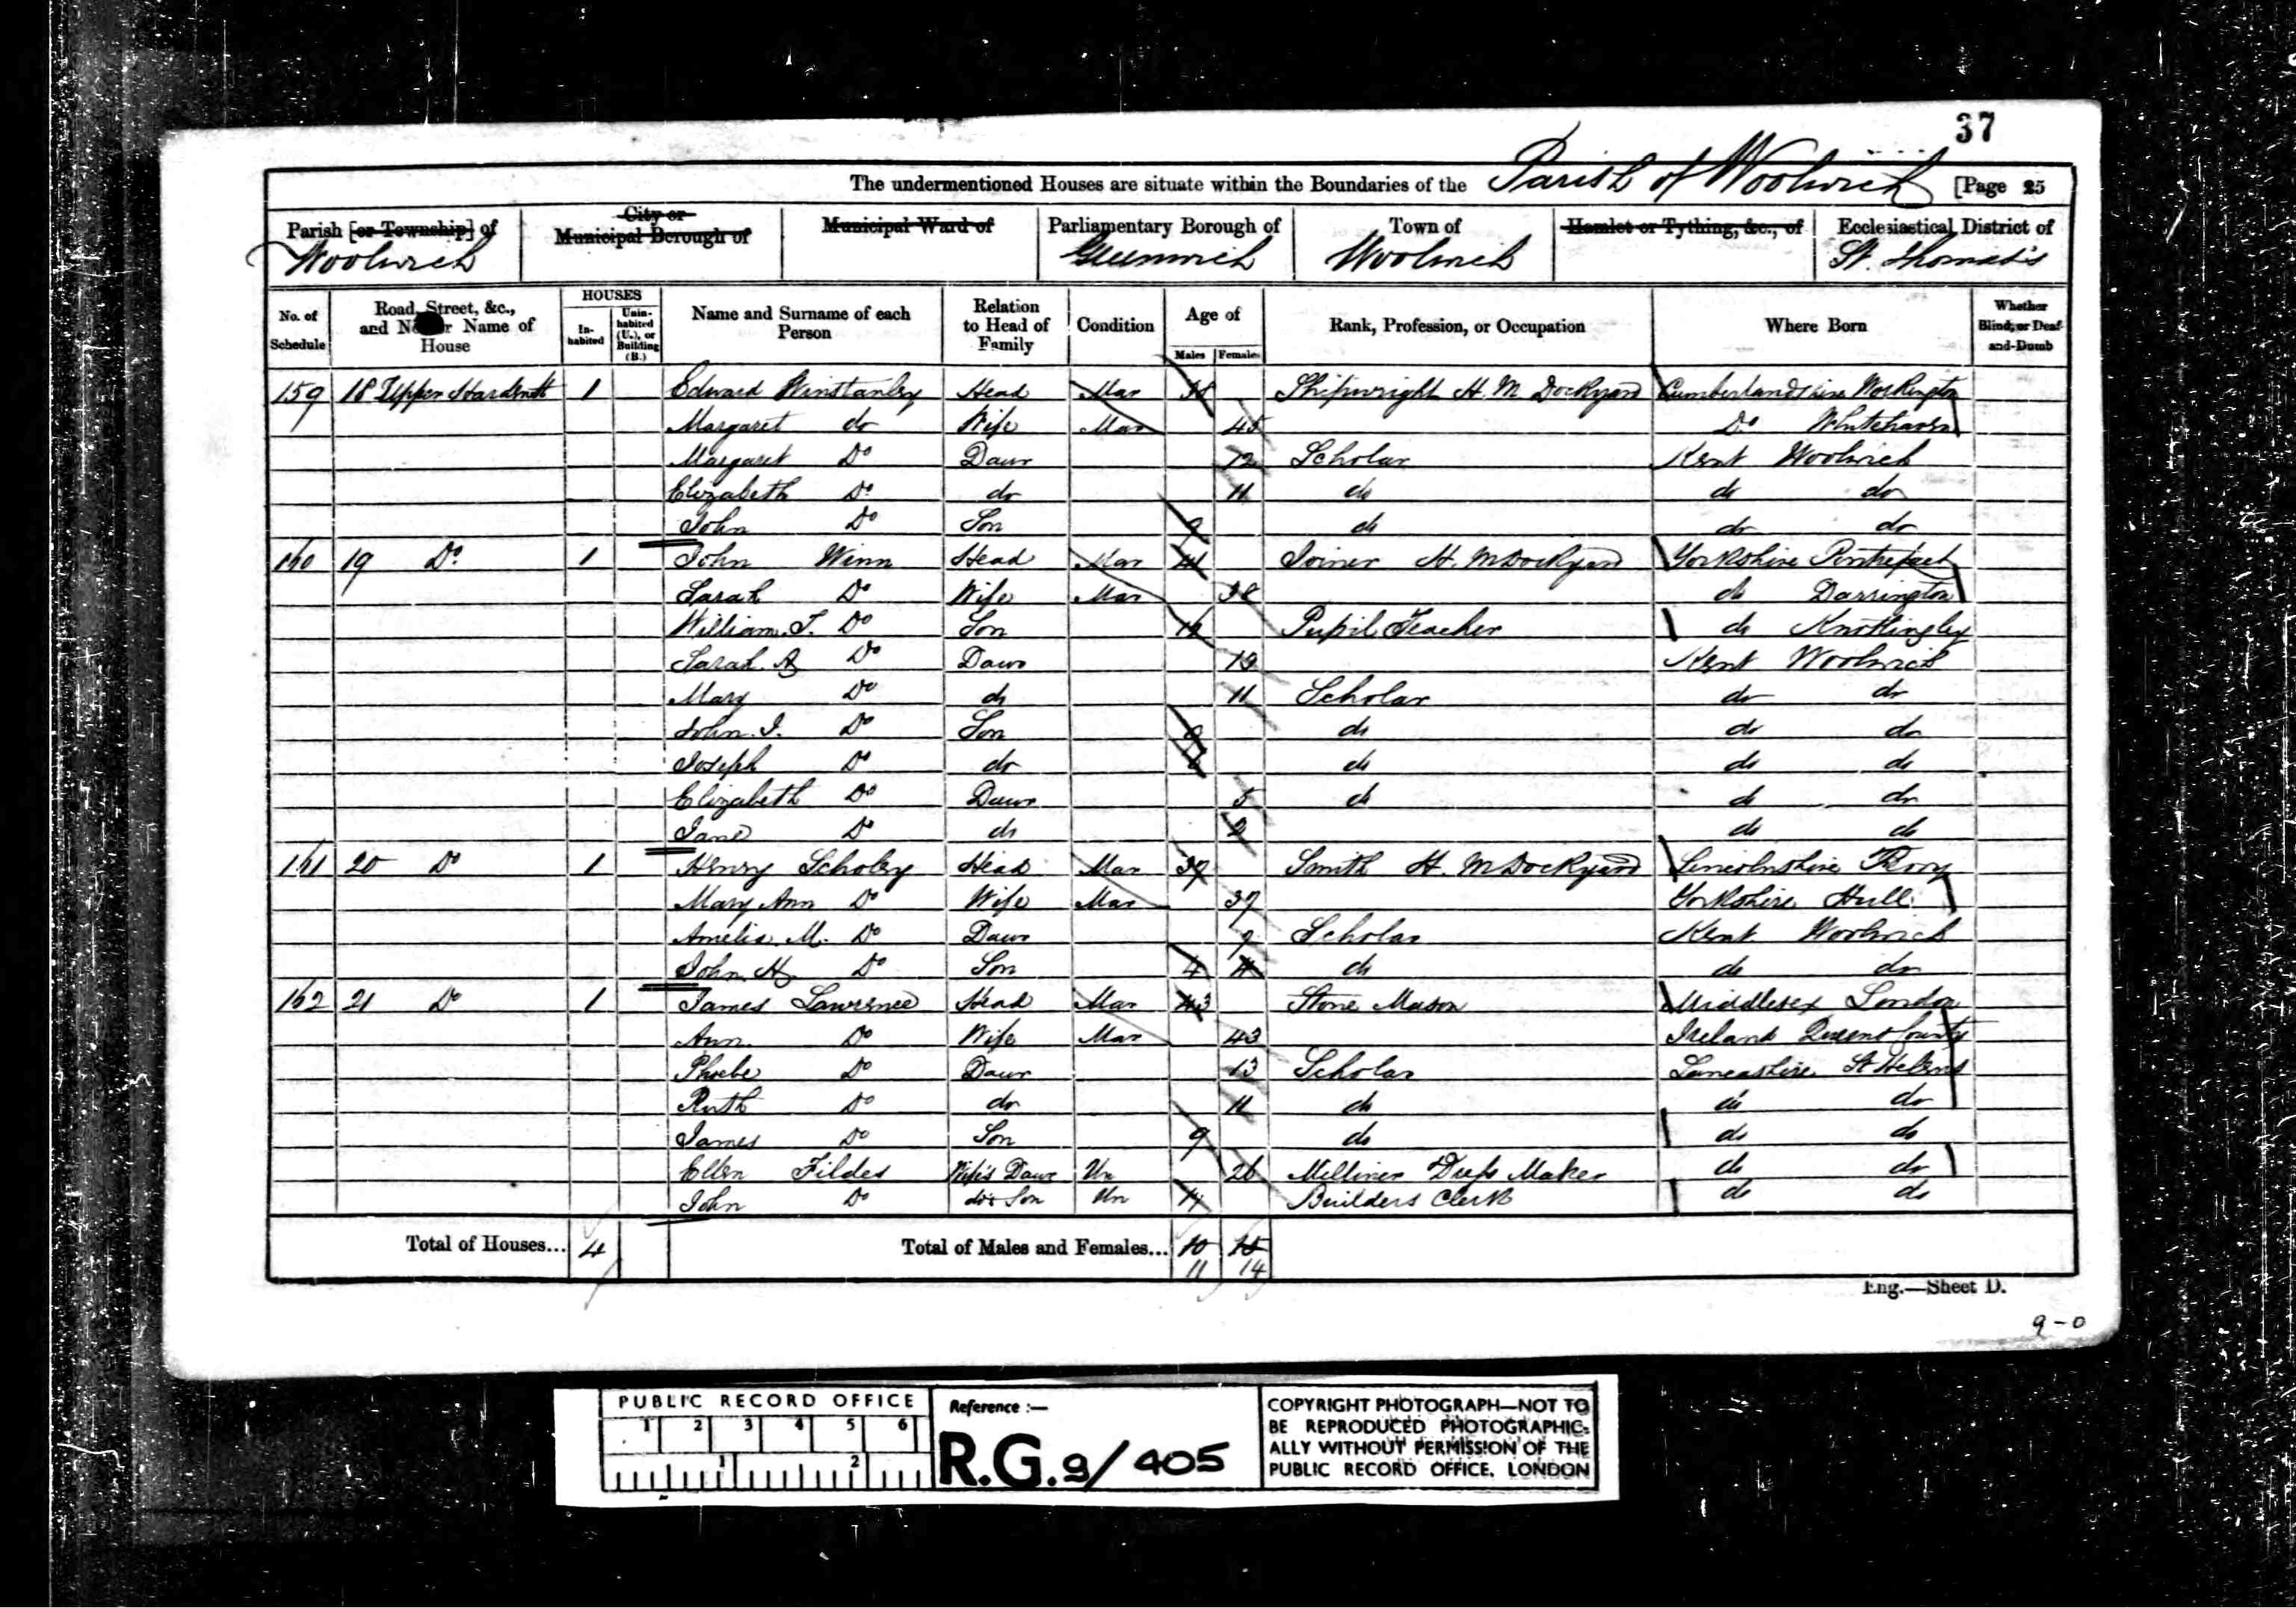 37
The undermentioned Houses are situate within the Boundaries of the Parish of Woolwich [Page 25
Parish [or Township] of Woolwich
City or Municipal Borough of
Municipal Ward of
Parliamentary Borough of Greenwich
Town of Woolwich
Hamlet or Tything, &c., of
Ecclesiastical District of St. Thomas's
No. of Schedule
Road, Street, &c., and No. or Name of House
HOUSES
In-habited
Unin-habited (U.), or Building (B.)
Name and Surname of each Person
Relation to Head of Family
Condition
Age of
Males
Females
Rank, Profession, or Occupation
Where Born
Whether Blind, or Deaf-and-Dumb
159 18 Upper 1 Edward Winstanley Head Mar 38 Shipwright H. M Dockyard Cumberlandshire Workington
Margaret do Wife Mar 45 Do Whitehaven
Margaret Do Daur 12 Scholar Kent Woolwich
Elizabeth Do do 11 do do do
John Do Son 9 do do do
160 19 Do 1 John Winn Head Mar 41 Joiner H. M Dockyard Yorkshire Pontefract
Sarah Do Wife Mar 38 do Darrington
William. T. Do Son Pupil Teacher do Knottingley
Sarah. A Do Daur 13 Kent Woolwich
Mary Do do 11 Scholar do do
John. J. Do Son 9 do do do
Joseph Do do do do do
Elizabeth Do Daur 5 do do do
Jane Do do 2 do do
161 20 Do 1 Henry Scholey Head Mar 39 Smith H. M Dockyard Lincolnshire
Mary Ann Do Wife Mar 39 Yorkshire Hull
Amelia. M. Do Daur 9 Scholar Kent Woolwich
John. H Do Son 4 4 do do do
162 21 Do 1 James Lawrence Head Mar 43 Stone Mason Middlesex London
Ann Do Wife Mar 43 Ireland Queens County
Phoebe Do Daur 13 Scholar Lancashire St Helens
Ruth Do do 11 do do do
James Do Son 9 do do do
Ellen Fildes Wife's Daur Un 26 Milliner Dress Maker do do
John Do do's Son Un Builders Clerk do do
Total of Houses... 4
Total of Males and Females... 10 15
11 14
Eng.—Sheet D.
9-0
PUBLIC RECORD OFFICE
1 2 3 4 5 6
1 2
Reference :—
R.G. 9/405
COPYRIGHT PHOTOGRAPH—NOT TO
BE REPRODUCED PHOTOGRAPHIC-
ALLY WITHOUT PERMISSION OF THE
PUBLIC RECORD OFFICE. LONDON